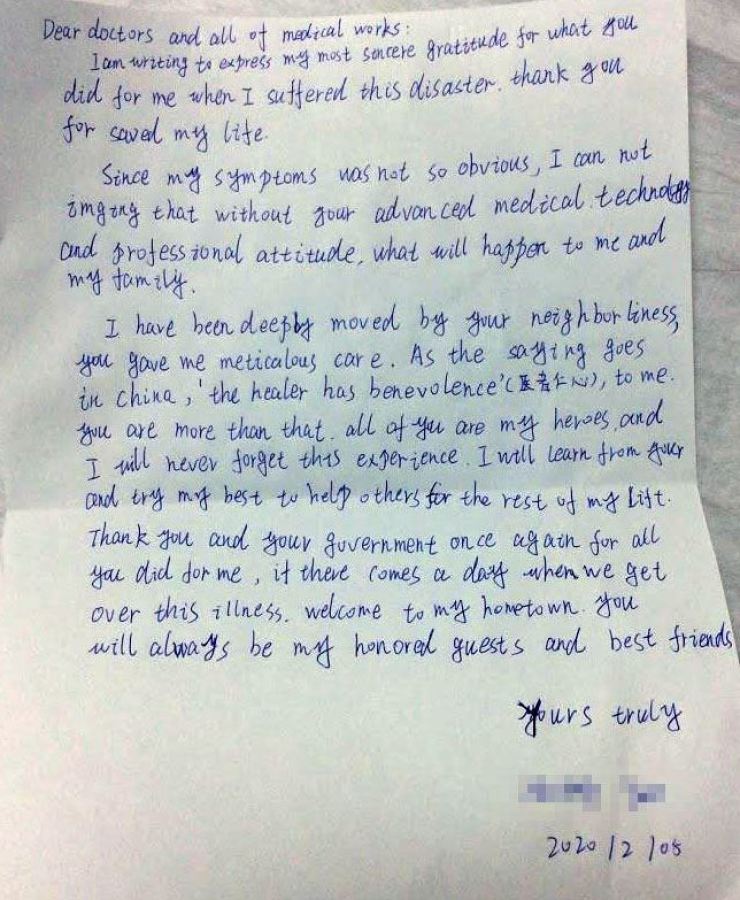 Dear doctors and all of medical works:
I am writing to express my most sincere gratitude for what you
did for me when I suffered this disaster. thank you
for saved my life.
Since my symptoms was not so obvious, I can not
imging that without your advanced medical technology
and professional attitude, what will happen to me and
my family.
I have been deeply moved by your neighborliness,
you gave me meticalous care. As the saying goes
in china, 'the healer has benevolence' (医者仁心), to me.
you are more than that. all of you are my heroes, and
I will never forget this experience. I will learn from your
and try my best to help others for the rest of my lift.
Thank you and your guvernment once again for all
you did for me, if there comes a day when we get
over this illness. welcome to my hometown. you
will always be my honored guests and best friends
yours truly
2020/2/05